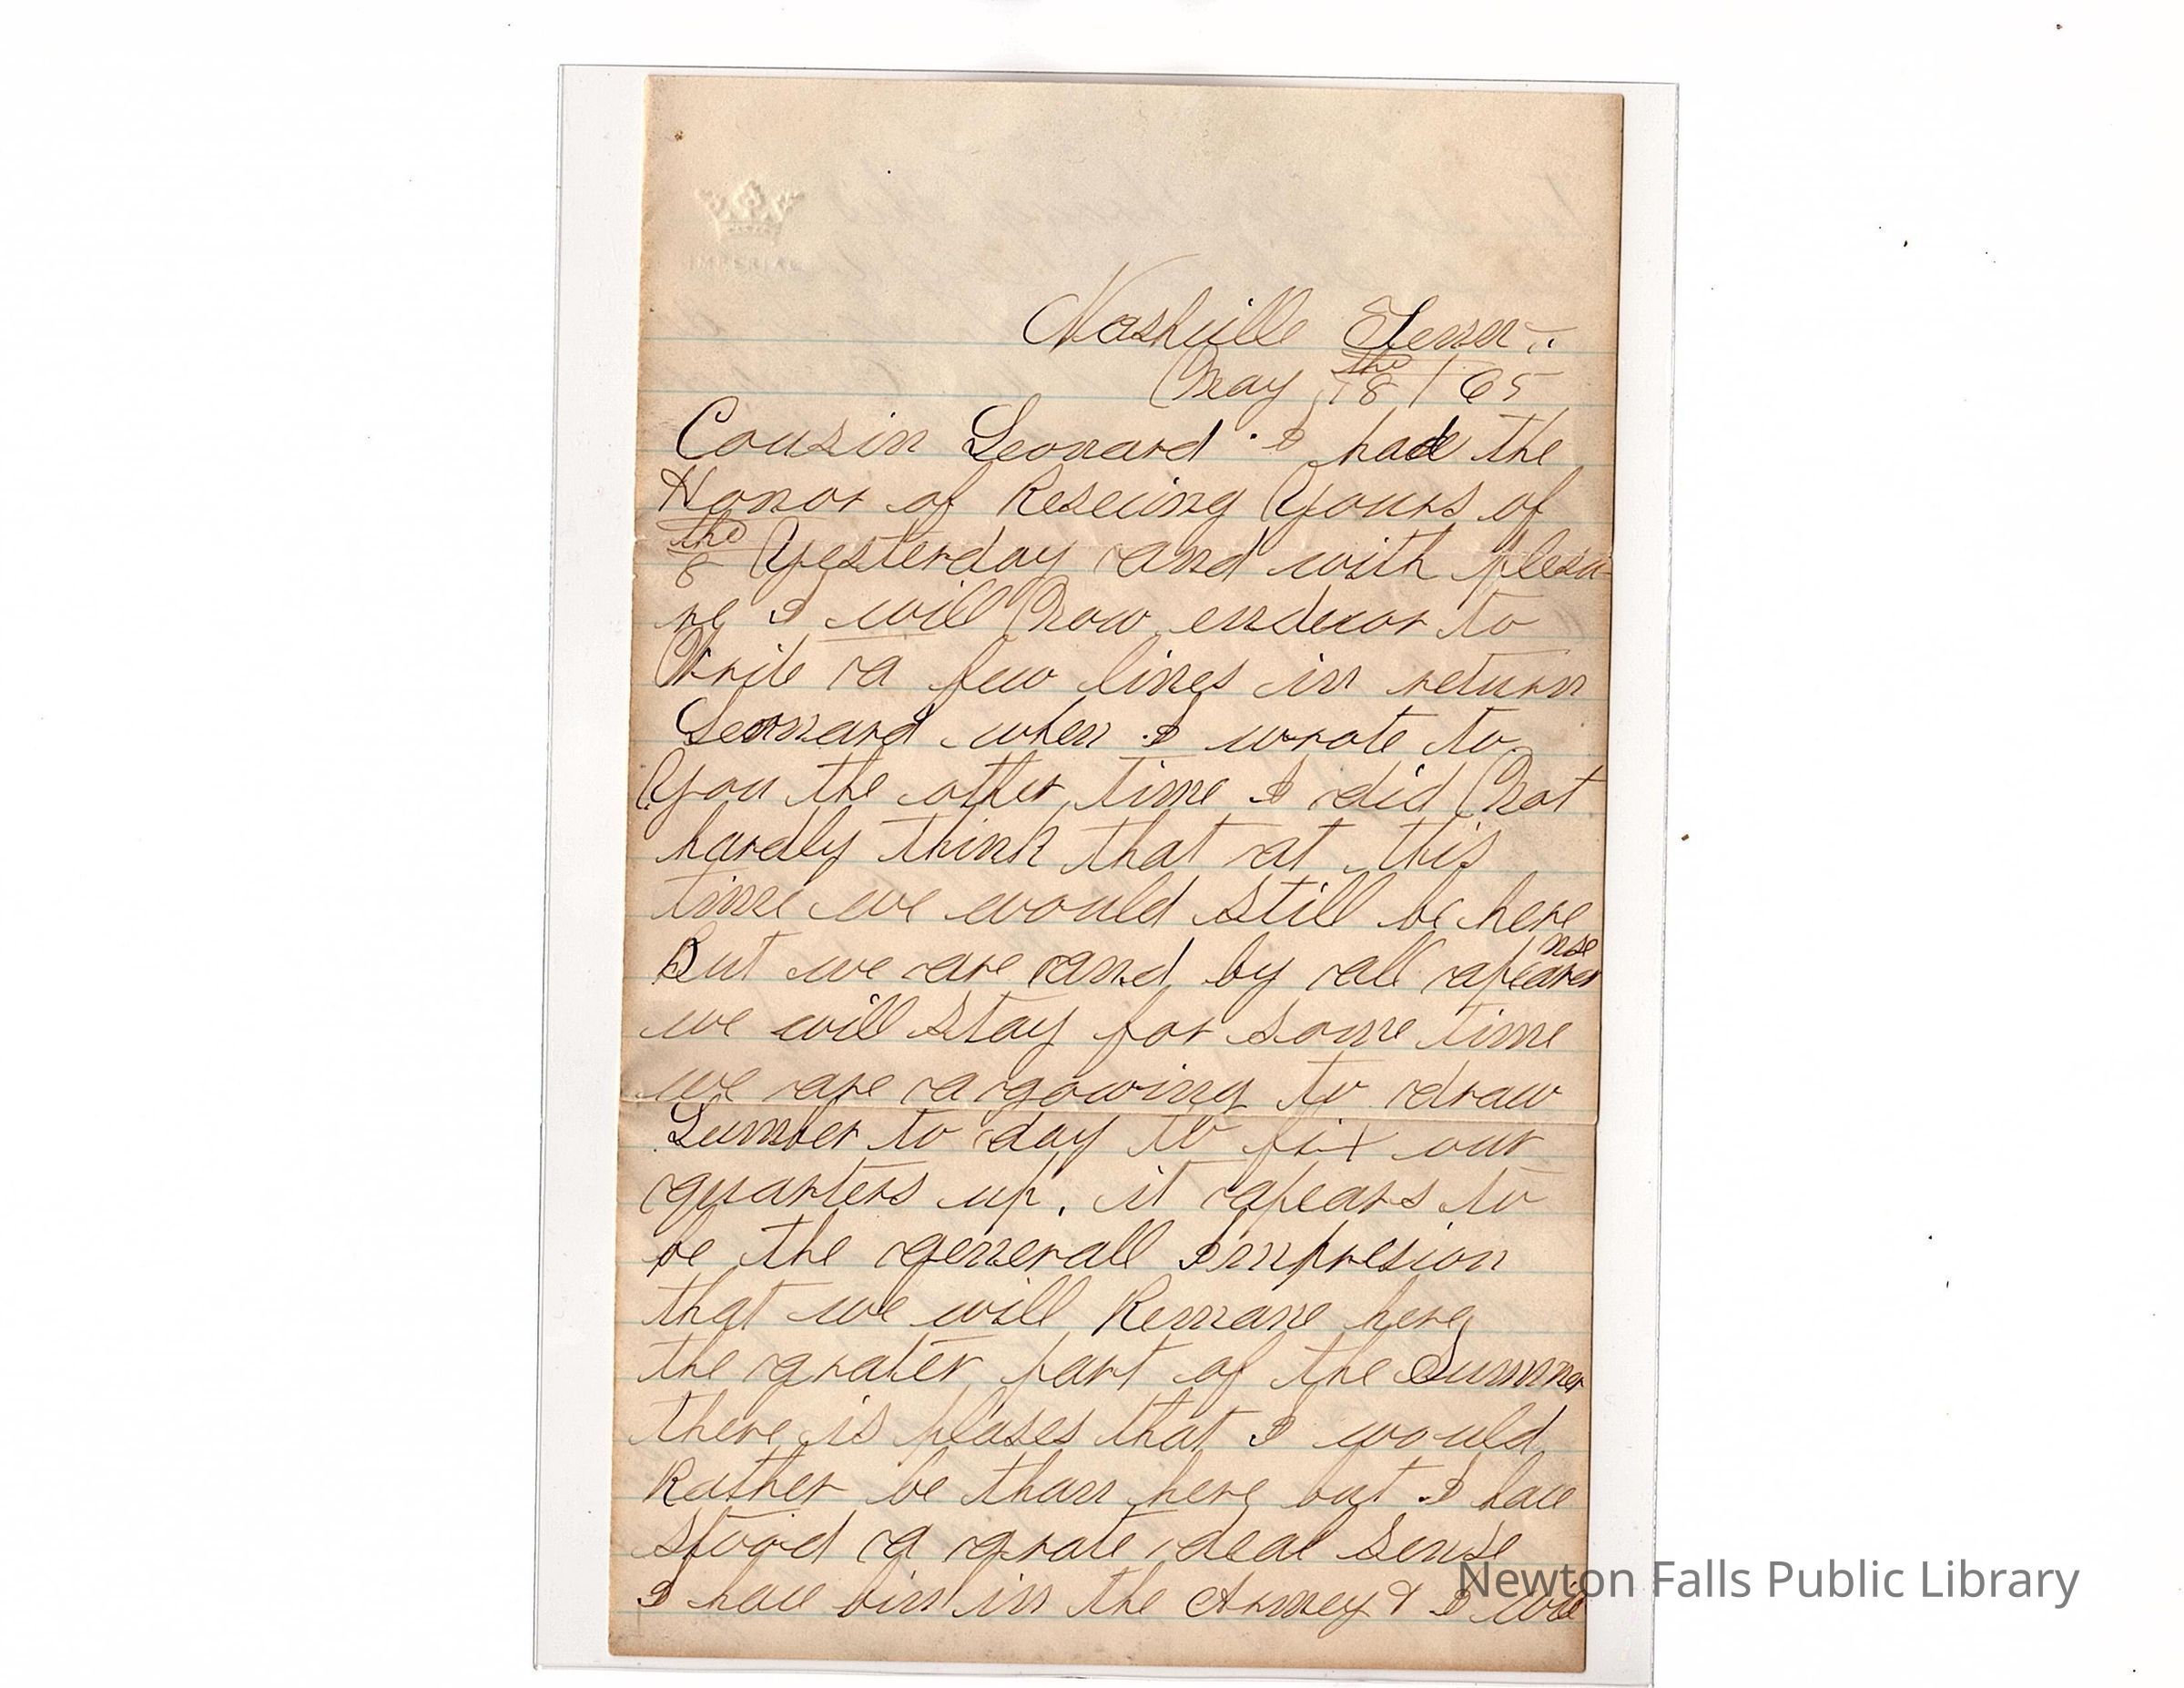 IMPERIAL
Nashville Tenn..
May 18the / 65
Cousin Leonard . I had the
Honor of Reseiing Yours of
the 8 Yesterday and with plesu-
re I will Now endevor to
Write a few lines in return
Leonard when I wrote to
You the other time I did Not
hardly think that at this
time we would still be here
But we are and by all apearanse
we will stay for some time
we are a gowing to draw
Lumber to day to fix our
quarters up. it apears to
be the generall Impresion
that we will Remane here
the grater part of the Summer
there is plases that I would
Rather be than here but I have
stood a grate deal sense
I have bin in the Armey & I will
Newton Falls Public Library